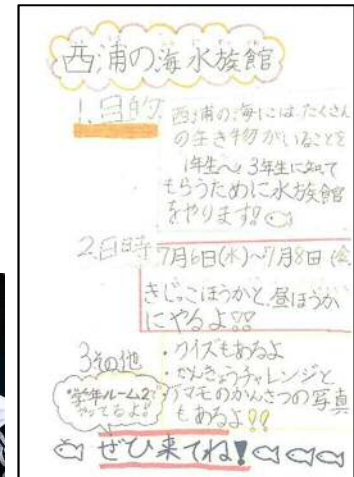 西浦の海水族館
1.目的
西浦の海には、たくさん
の生き物がいることを
1年生へ3年生に知って
もらうために水族館
をやります!!
2.日時
7月6日(水)~7月8日(金)
きじっこほうかと、昼ほうか
にやるよ!!
3その他
・クイズもあるよ
・かんきょうチャレンジと
アマモのかんさつの写真
もあるよ!!
学年ルーム2で
やってるよ!!
ぜひ来てね!